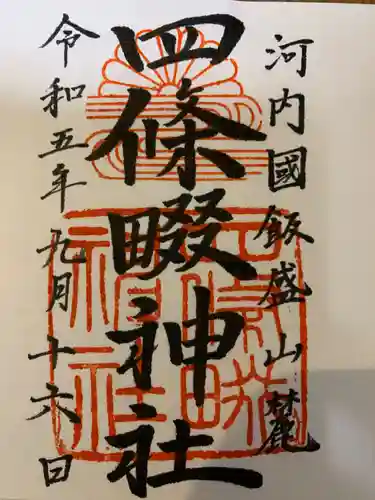 河内國飯盛山麓
四條畷神社
令和五年九月十六日